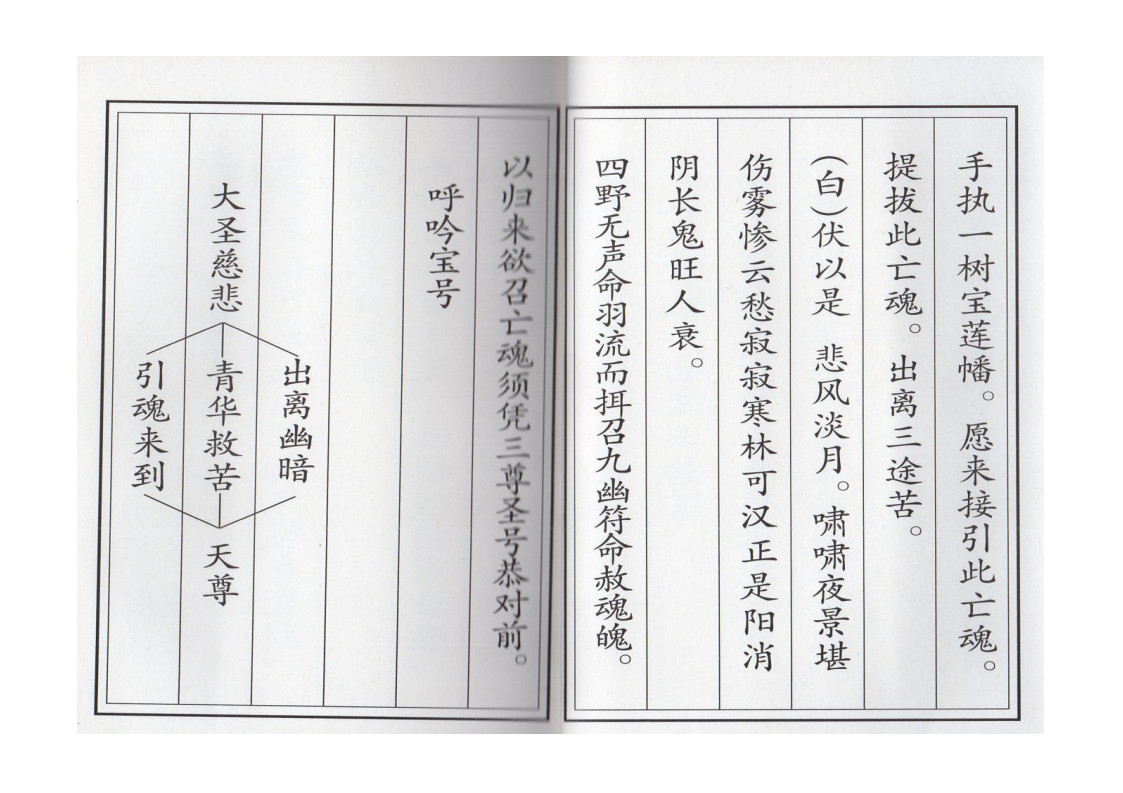 手执一树宝莲幡。愿来接引此亡魂。
提拔此亡魂。出离三途苦。
(白)伏以是 悲风淡月。啸啸夜景堪
伤雾惨云愁寂寂寒林可汉正是阳消
阴长鬼旺人衰。
四野无声命羽流而挕召九幽符命赦魂魄。
以归来欲召亡魂须凭三尊圣号恭对前。
呼吟宝号
大圣慈悲
出离幽暗
青华救苦
引魂来到
天尊